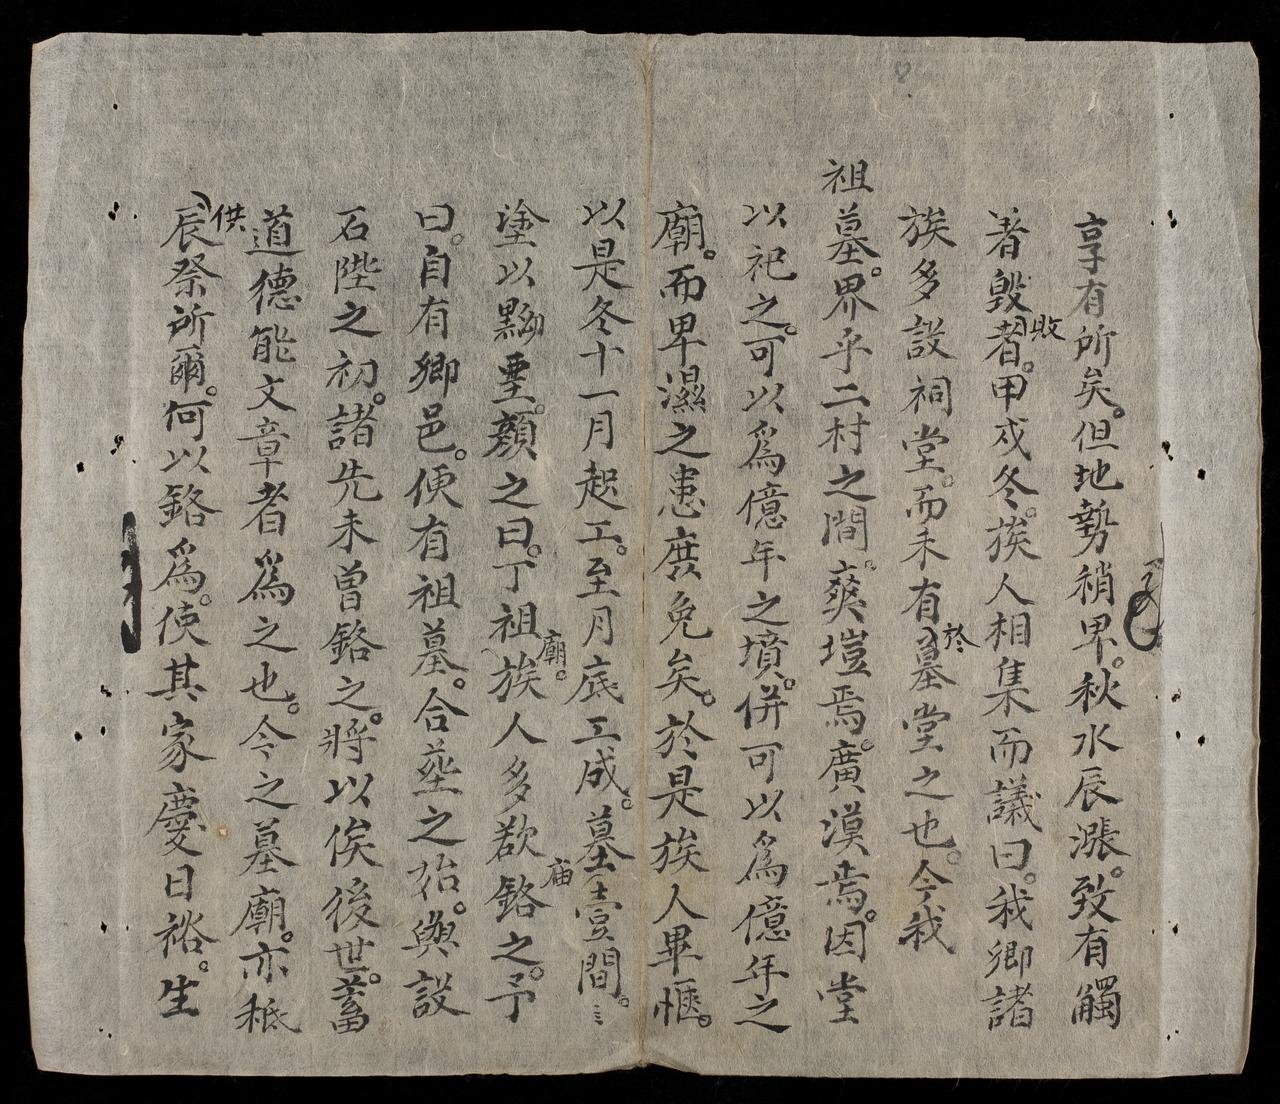 享有所矣。但地勢稍卑。秋水辰漲。致有觸
著毀者敗。甲戌冬。族人相集而議曰。我鄉諸
族多設祠堂。而未有於墓堂之也。今我
祖墓。界乎二村之間。奭塏焉。廣漠焉。因堂
以祀之。可以爲億年之墳。併可以爲億年之
廟。而卑濕之患庶免矣。於是族人畢愜。
以是冬十一月起工。至月底工成。墓庙壹間。
塗以黝堊。顏之曰。丁祖廟。族人多欲銘之。予
曰。自有鄉邑。便有祖墓。合塋之始。與設
石陛之初。諸先未曾銘之。將以俟後世。蓄
道德能文章者爲之也。今之墓廟。亦秪
供辰祭所爾。何以銘爲。使其家慶日裕。生